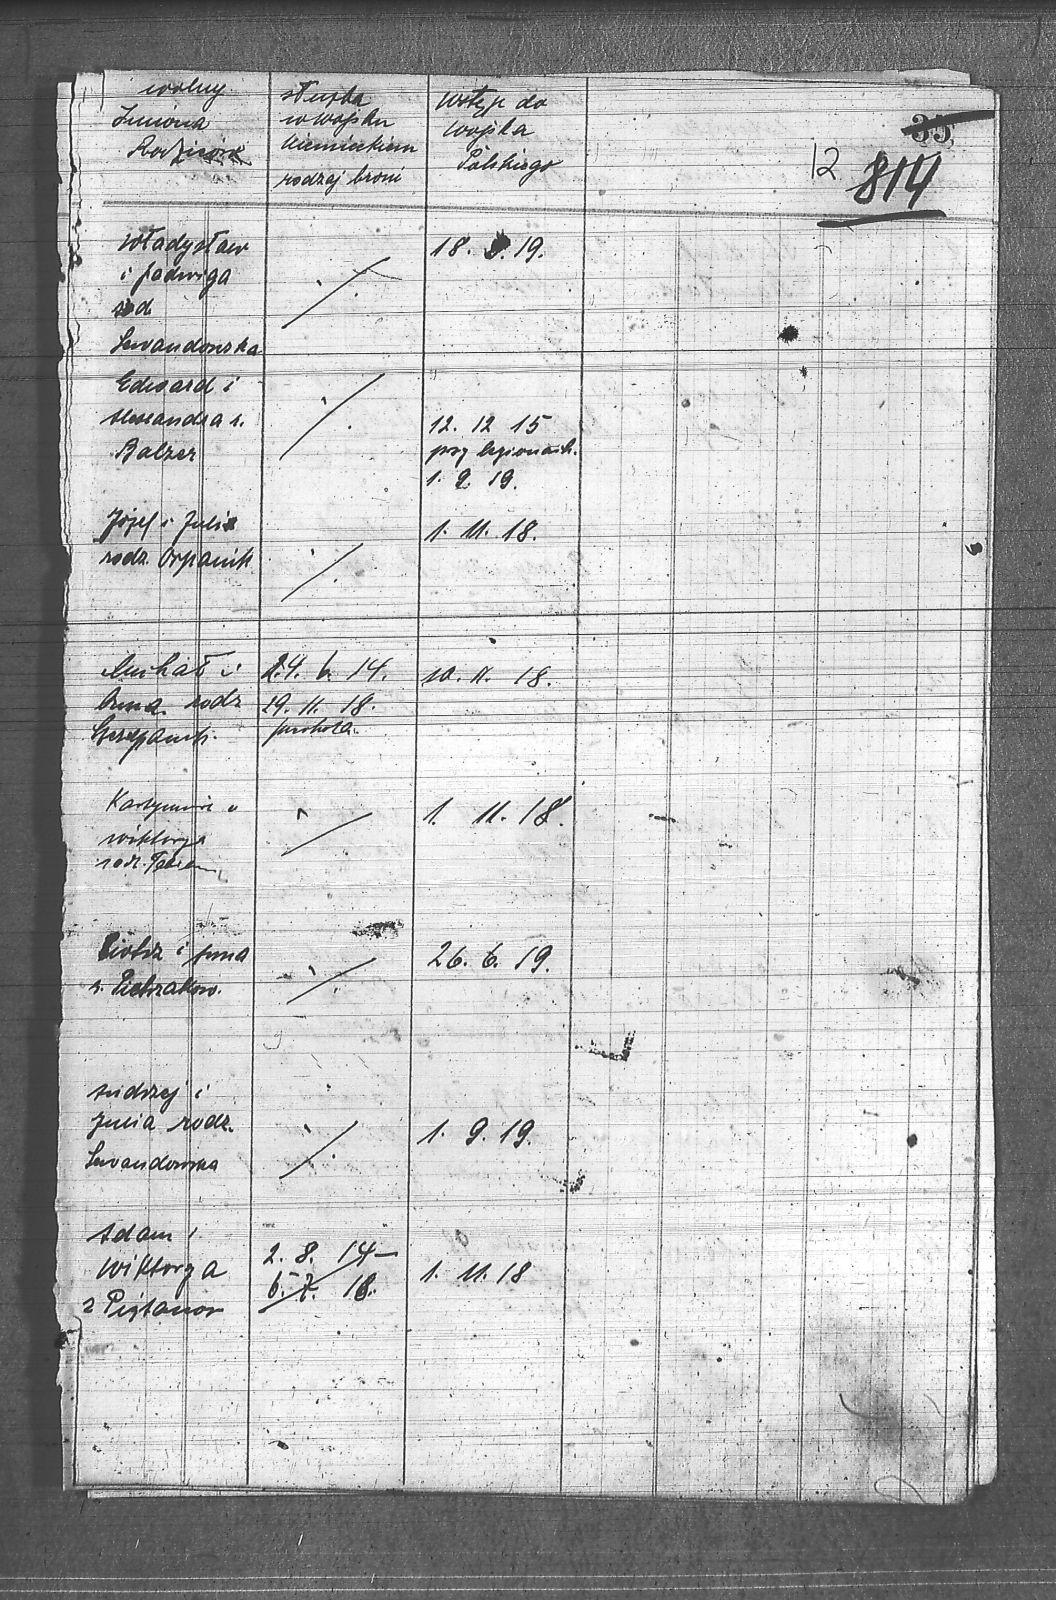 wolny
Imiona
służba
w wojsku
niemieckiem
rodzaj broni
wstęp do
wojska
Polskiego
35
12 814
Władysław
i Jadwiga
Lewandowska
18. 19.
Edward i
Aleksandra r.
Balzer
12. 12 15
przy legionach.
1. 9. 19.
Józef i Julia
rodz. Orpanik
1. 11. 18.
Michał i
Anna rodz
Szczepanik.
24. 6. 14.
29. 11. 18.
piechota.
10. 11. 18.
Kazymierz i
Wiktorya
rodz.
1. 11. 18.
Piotr i Anna
r. Pietrzakow.
26. 6. 19.
Andrzej i
Julia rodz.
Lewandowska
1. 9. 19.
Adam i
Wiktorya
z
2. 8. 14 —
6. 7. 18.
1. 11. 18